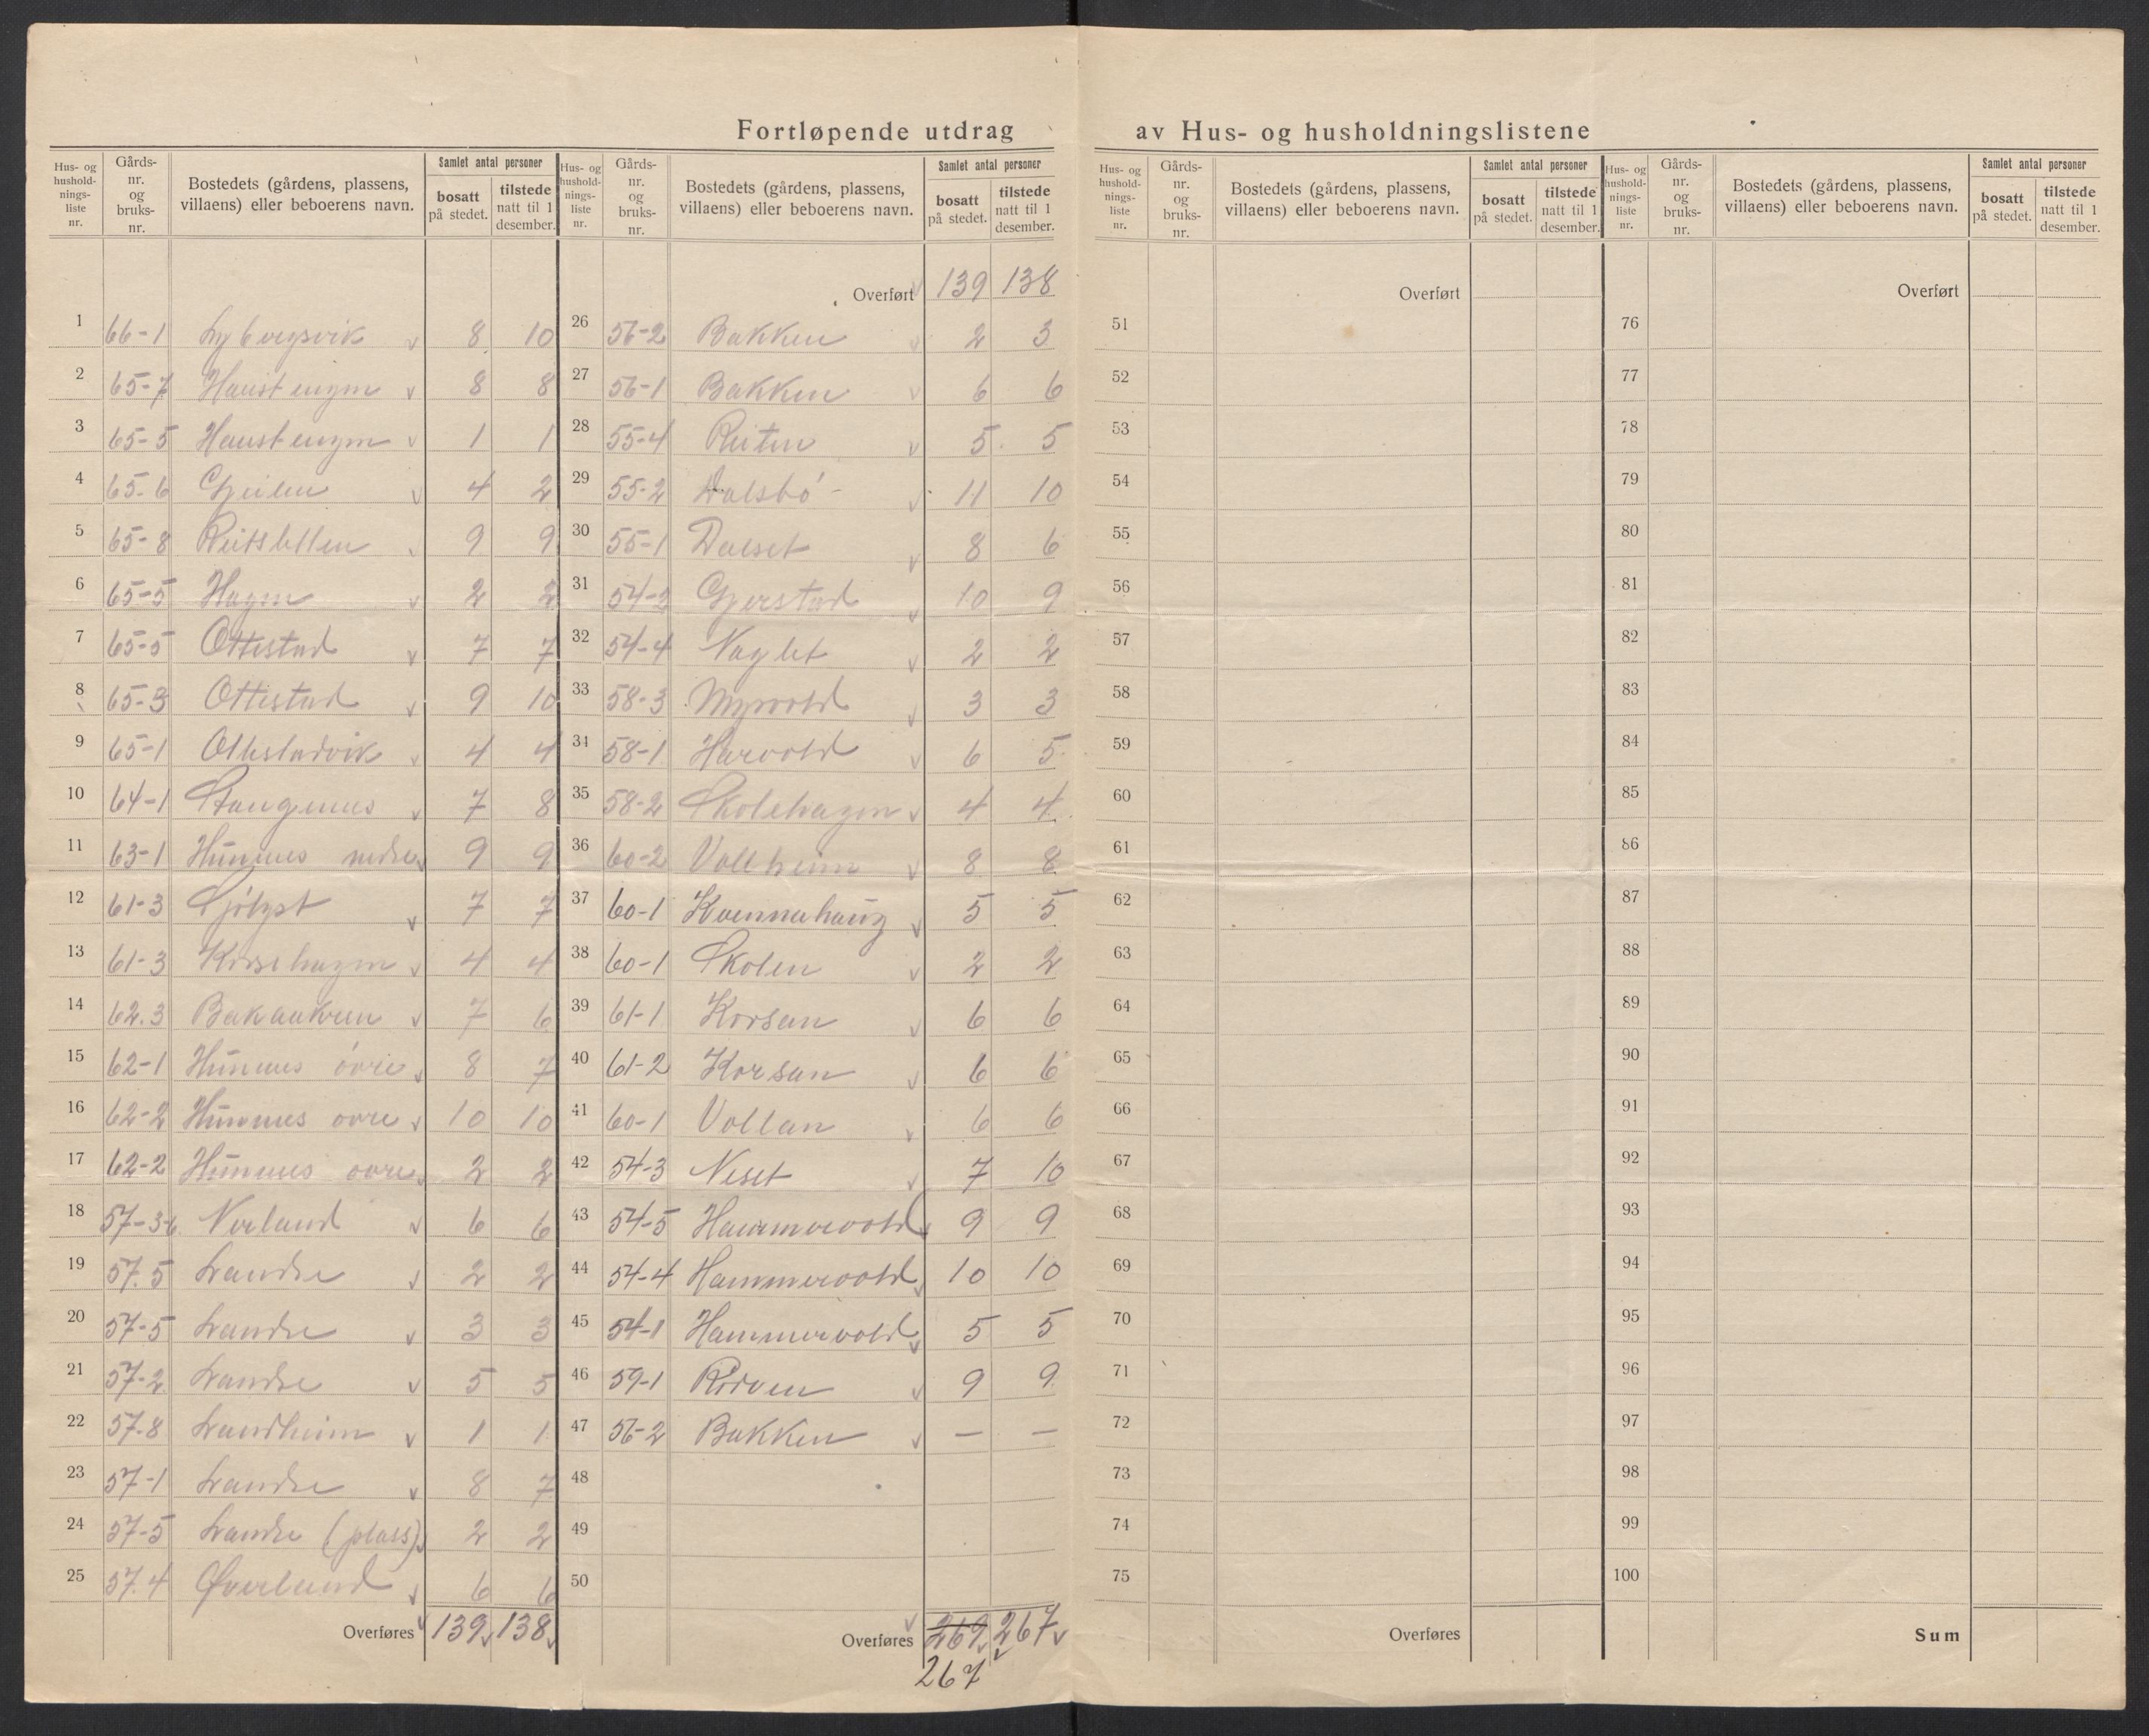 Fortløpende utdrag av Hus- og husholdningslistene
Hus- og hushold-nings-liste nr. Gårds-nr. og bruks-nr. Bostedets (gårdens, plassens, villaens) eller beboerens navn. Samlet antal personer bosatt på stedet. tilstede natt til 1 desember.
1 66-1 8 10
2 65-7 8 8
3 65-5 1 1
4 65-6 Gjeilen 4 2
5 65-8 Reitsletten 9 9
6 65-5 Hagen 2 2
7 65-5 Ottestad 7 7
8 65-3 Ottestad 9 10
9 65-1 Ottestadvik 4 4
10 64-1 Stangenes 7 8
11 63-1 Hünnes nedre 9 9
12 61-3 7 7
13 61-3 Korsehagen 4 4
14 62.3 7 6
15 62-1 Hünnes övre 8 7
16 62-2 Hünnes ovre 10 10
17 62-2 Hünnes ovre 2 2
18 57-3-6 Nerland 6 6
19 57.5 Landre 2 2
20 57-5 Landre 3 3
21 57-2 Landre 5 5
22 57-8 Landheim 1 1
23 57-1 Landre 8 7
24 57-5 Landre (plass) 2 2
25 57.4 Øverland 6 6
Overføres 139 138
Hus- og hushold-nings-liste nr. Gårds-nr. og bruks-nr. Bostedets (gårdens, plassens, villaens) eller beboerens navn. Samlet antal personer bosatt på stedet. tilstede natt til 1 desember.
Overført 139 138
26 56-2 Bakken 2 3
27 56-1 Bakken 6 6
28 55-4 Reiten 5 5
29 55-2 Dalsbó 11 10
30 55-1 Dalset 8 6
31 54-2 Gjerstad 10 9
32 54-4 Naglet 2 2
33 58-3 Myrvold 3 3
34 58-1 Harvold 6 5
35 58-2 Skolehagen 4 4
36 60-2 Vollheim 8 8
37 60-1 Kvennahaüg 5 5
38 60-1 Skolen 2 2
39 61-1 Korsan 6 6
40 61-2 Korsan 6 6
41 60-1 Vollan 6 6
42 54-3 Neset 7 10
43 54-5 Hammervold 9 9
44 54-4 Hammervold 10 10
45 54-1 Hammervold 5 5
46 59-1 Rödven 9 9
47 56-2 Bakken — —
48
49
50
Overføres 269 267
267
Hus- og hushold-nings-liste nr. Gårds-nr. og bruks-nr. Bostedets (gårdens, plassens, villaens) eller beboerens navn. Samlet antal personer bosatt på stedet. tilstede natt til 1 desember.
Overført
51
52
53
54
55
56
57
58
59
60
61
62
63
64
65
66
67
68
69
70
71
72
73
74
75
Overføres
Hus- og hushold-nings-liste nr. Gårds-nr. og bruks-nr. Bostedets (gårdens, plassens, villaens) eller beboerens navn. Samlet antal personer bosatt på stedet. tilstede natt til 1 desember.
Overført
76
77
78
79
80
81
82
83
84
85
86
87
88
89
90
91
92
93
94
95
96
97
98
99
100
Sum